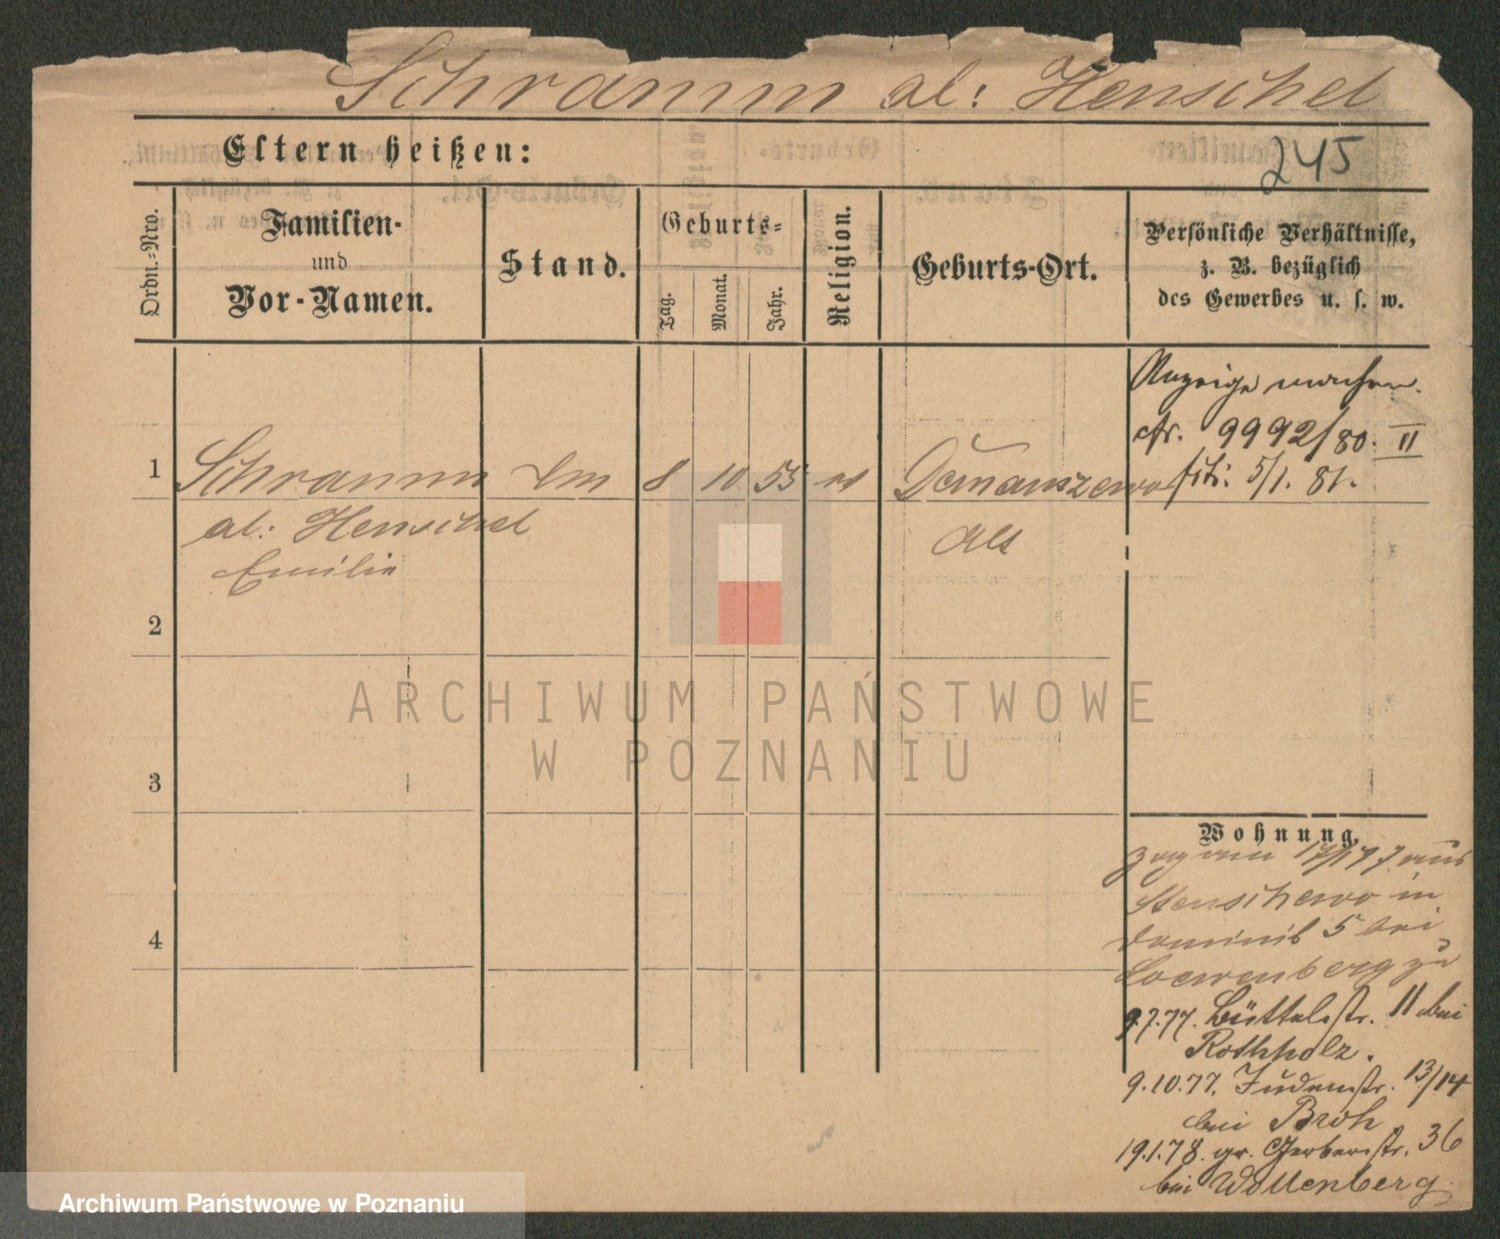 Schramm al: Henschel
Eltern heißen:
245
Ordn.-Nro.
Familien-
und
Vor-Namen.
Stand.
Geburts-
Tag.
Monat.
Jahr.
Religion.
Geburts-Ort.
Persönliche Verhältnisse,
z. B. bezüglich
des Gewerbes u. s. w.
Anzeige machen.
cfr. 9992/80. II
1 Schramm 8 10 55 5/1. 81.
al: Henschel
Emilie
2
3
4
Wohnung.
aus
in
Dominik 5 bei
Loewenberg zu
9.7.77. Büttelstr. 11 bei
Rothholz.
9.10.77. Judenstr. 13/14
bei Broh
19.1.78. gr. Gerberstr. 36
bei Wollenberg
ARCHIWUM PAŃSTWOWE
W POZNANIU
Archiwum Państwowe w Poznaniu